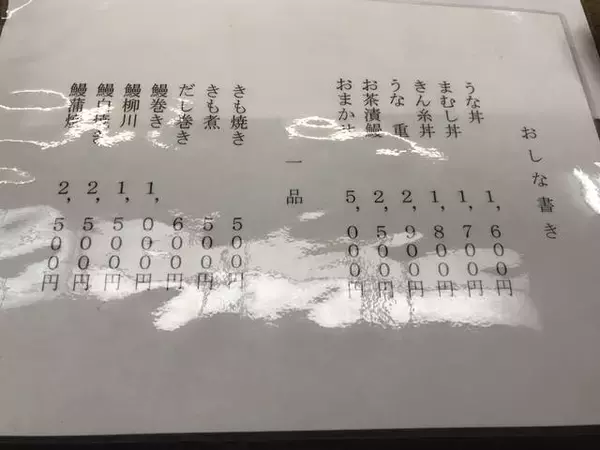 おしな書き
うな丼 1,600円
まむし丼 1,700円
きん糸丼 1,800円
うな 重 2,900円
お茶漬鰻 2,500円
おまかせ 5,000円
一品
きも焼き 500円
きも煮 500円
だし巻き 600円
鰻巻き 1,000円
鰻柳川 1,500円
鰻白焼き 2,500円
鰻蒲焼 2,500円